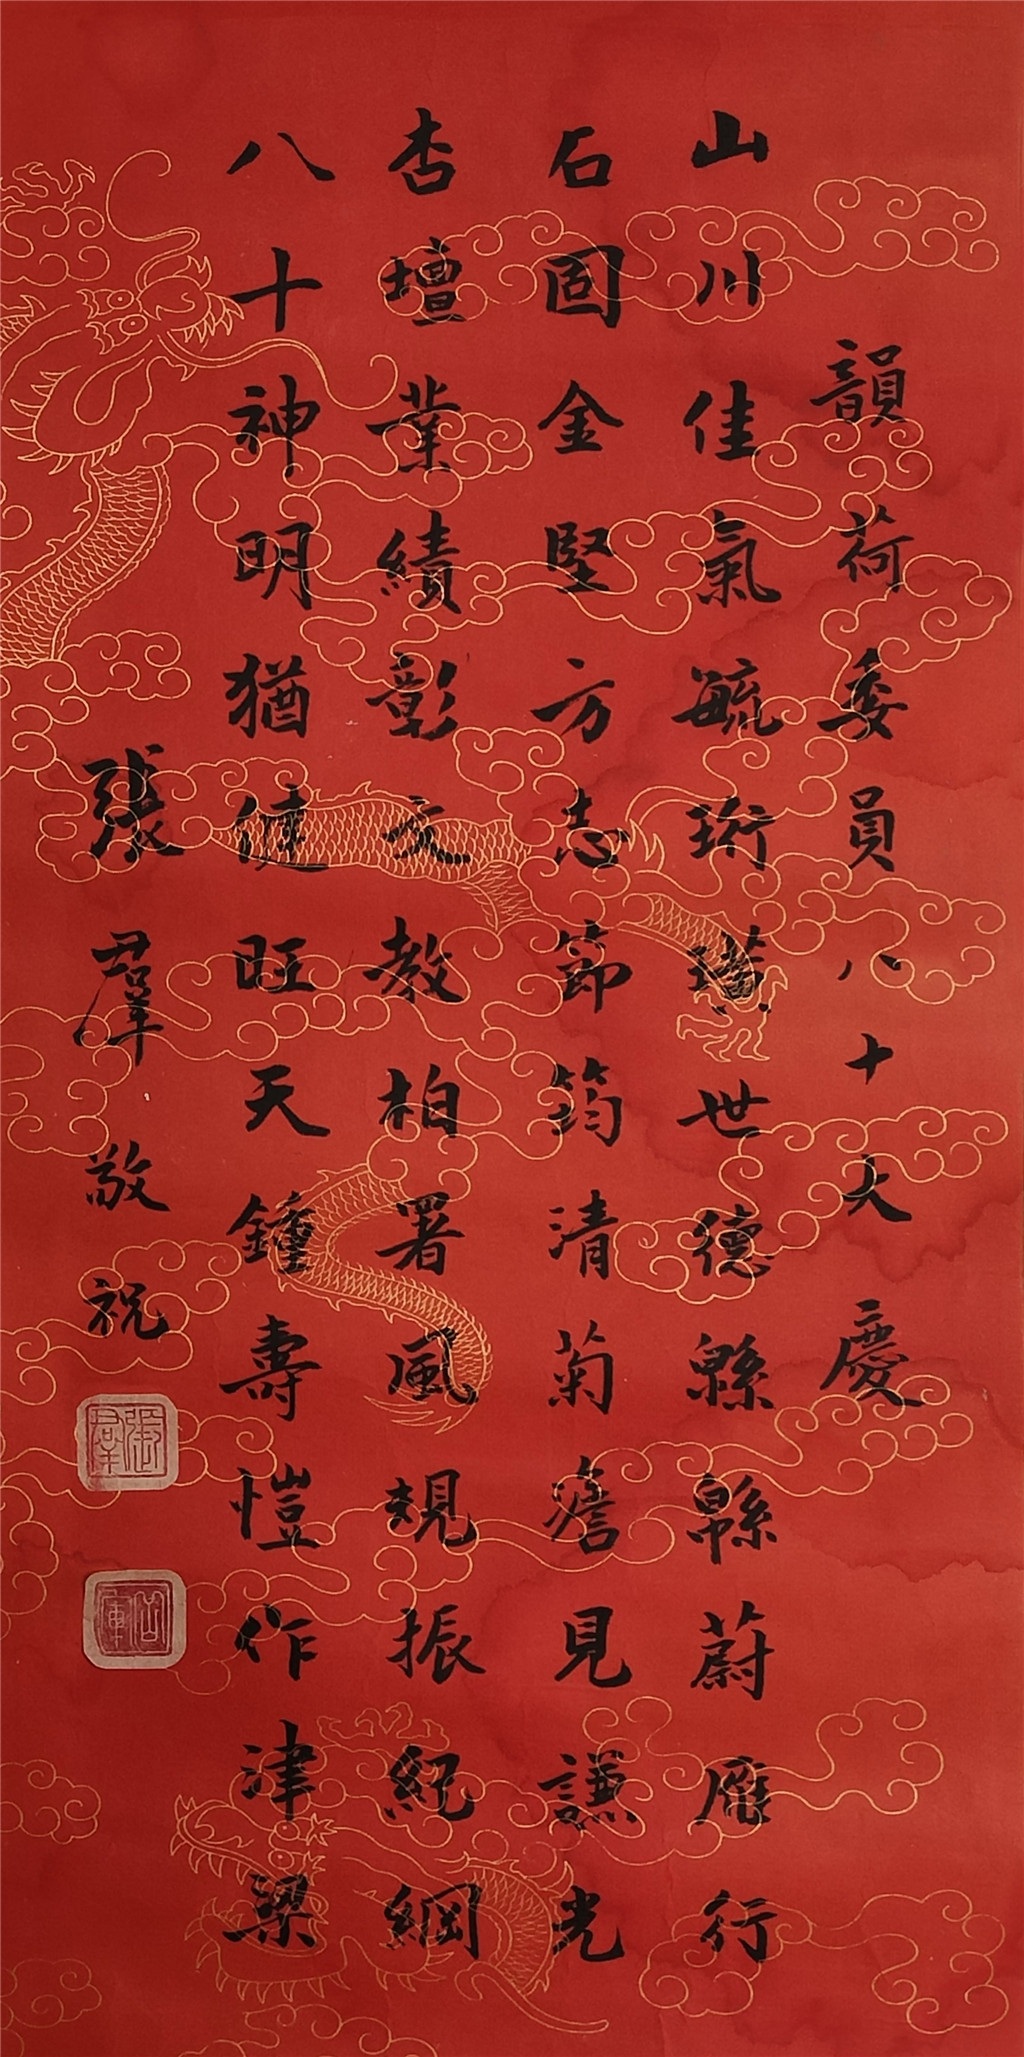 韻荷委員八十大慶
山川佳氣毓珩璜世德緜緜蔚雁行
石固金堅方志節筠清菊澹見謙光
杏壇業績彰文教柏署風規振紀綱
八十神明猶健旺天鍾壽愷作津梁
張羣敬祝
張羣
岳軍